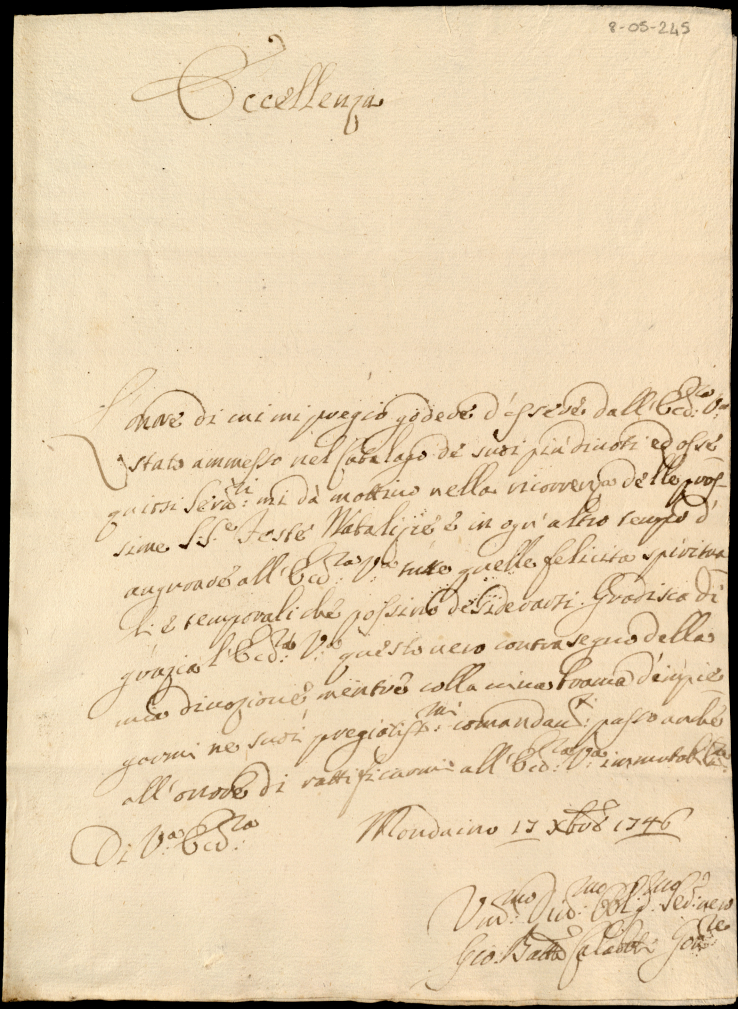 8-05-245
Eccellenza
L'onore di cui mi pregio godere d'essere dall'Ecc:za V:ra
stato ammesso nel Catalago de suoi più divoti ed osse
quiosi Serv:ri mi dà mottivo nella ricorrenza delle pros-
sime S.S.e Feste Natalizie è in ogn'altro tempo d'
augurare all'Ecc:za V:ra tutte quelle felicità spiritua
li è temporali che possino desiderarsi. Gradisca di
grazia l'Ecc:za V:ra questo vero contrasegno della
mia divozione mentre colla viva brama d'impie
garmi ne suoi pregiatiss:mi comandam:ti passo anche
all'onore di rattificarmi all'Ecc:za V:ra immutabilm:te
Di V:ra Ecc:za
Mondaino 17 Xbre 1746
Um:mo Dev:mo Obblig:mo Ser:re vero
Gio: Batta